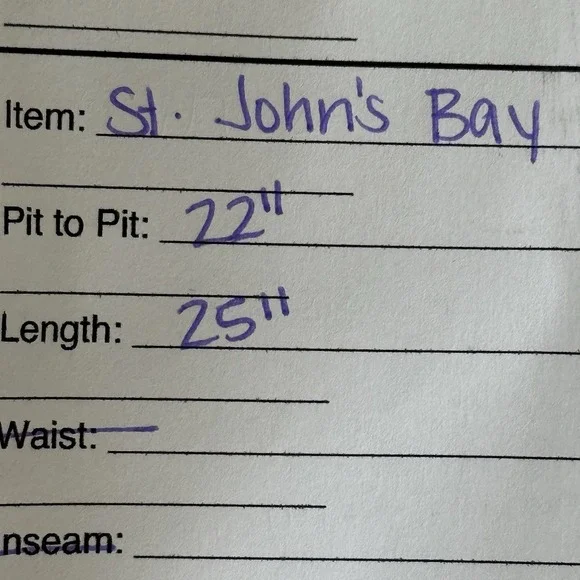 Item: St. John's Bay
Pit to Pit: 22"
Length: 25"
Waist:
nseam: